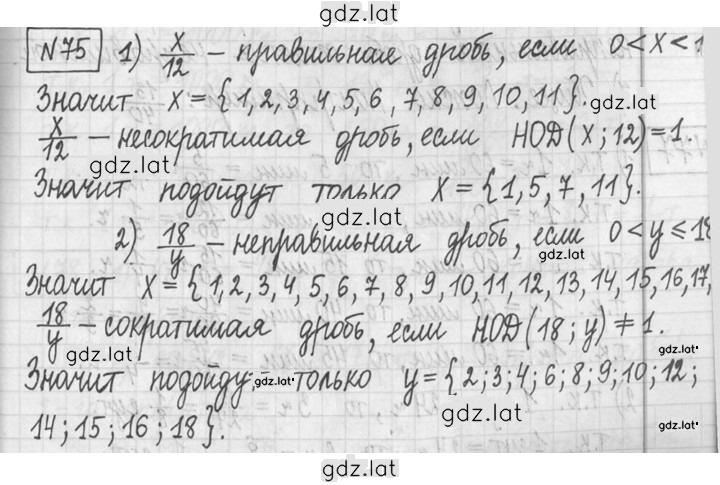 gdz.lat
№75 1) x/12 – правильная дробь, если 0 < x < 1
Значит x = {1, 2, 3, 4, 5, 6, 7, 8, 9, 10, 11}. gdz.lat
x/12 – несократимая дробь, если НОД(x; 12) = 1.
gdz.lat
Значит подойдут только x = {1, 5, 7, 11}.
gdz.lat
2) 18/y – неправильная дробь, если 0 < y ≤ 18
gdz.lat
Значит x = {1, 2, 3, 4, 5, 6, 7, 8, 9, 10, 11, 12, 13, 14, 15, 16, 17,
18/y – сократимая дробь, если НОД(18; y) ≠ 1.
gdz.lat gdz.lat
Значит подойду gdz.lat только y = {2; 3; 4; 6; 8; 9; 10; 12;
gdz.lat
14; 15; 16; 18}. gdz.lat
gdz.lat